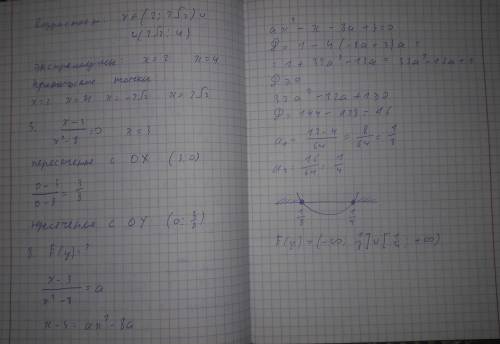 Возрастает x ∈ (2; 2√2) ∪
∪ (2√2; 4)
Экстремумы x = 2 x = 4
критические точки
x = 2 x = 4 x = -2√2 x = 2√2
5. (x-3)/(x²-8) = 0 x = 3
пересечение с OX (3; 0)
(0-3)/(0-8) = 3/8
пересечение с OY (0; 3/8)
8. E(y) = ?
(x-3)/(x²-8) = a
x-3 = ax² - 8a
ax² - x - 8a + 3 = 0
D = 1 - 4(-8a+3)a =
D ≥ 0
32a² - 12a + 1 ≥ 0
D = 144 - 128 = 16
= (12-4)/64 = 8/64 = 1/8
= 16/64 = 1/4
1/8 1/4
E(y) = (-∞; 1/8] ∪ [1/4; +∞)